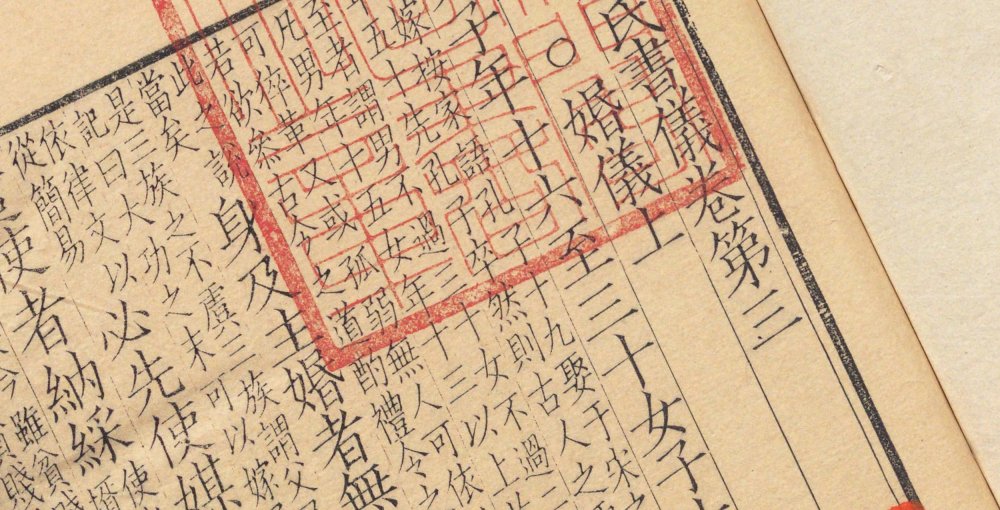 氏書儀卷第三
○婚儀上
子年十六至三十女子
嫁按家語孔子十九娶于宋之
五十先孔子卒然則古人之
至者謂男不過三十女不過二
凡男年十五女年十三以上並
可倅革又或孤弱無人可依
若欲參古今之道酌禮令之
此之說
當矣
身及主婚者無
是三族之不虞三族謂父
記曰大功之末可以嫁
依律文以
從簡易
必先使媒
使者納綵